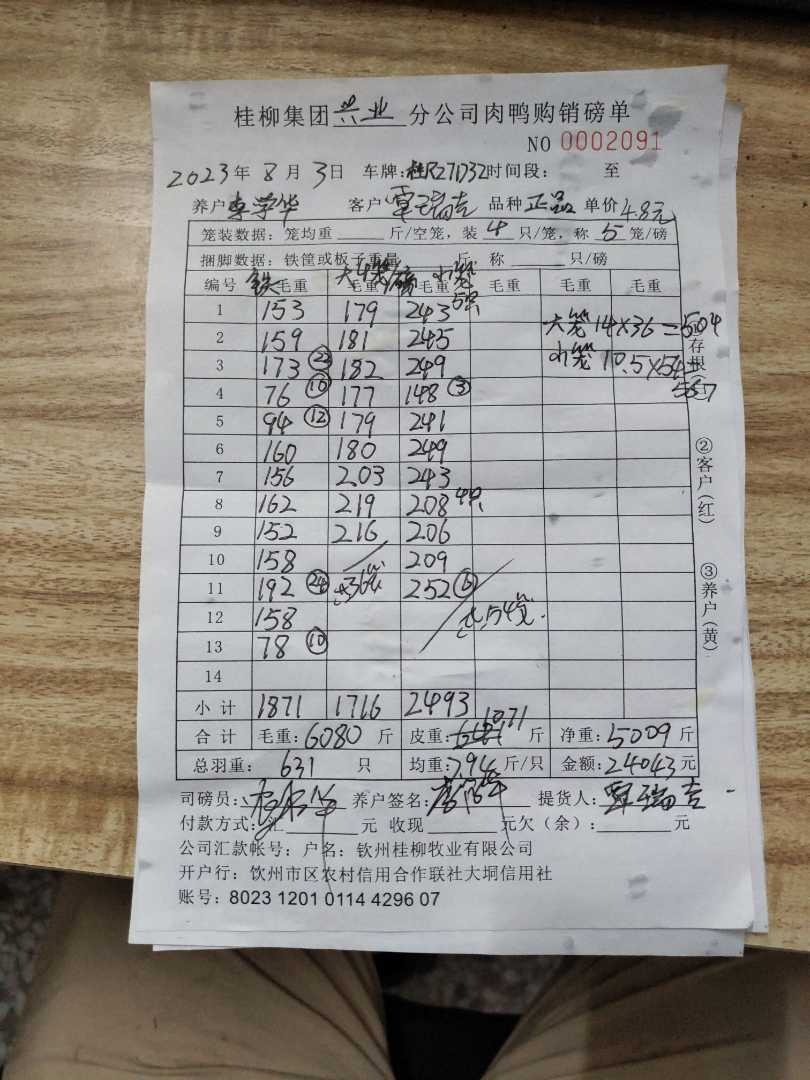 桂柳集团兴业分公司肉鸭购销磅单
NO 0002091
2023年8月3日 车牌:桂R271D32时间段: 至
养户 李学华 客户 覃瑞吉 品种 正品 单价 4.8元
笼装数据: 笼均重 斤/空笼, 装 4 只/笼, 称 5 笼/磅
捆脚数据: 铁筐或板子重量 斤 称 只/磅
编号 铁 毛重 大4笼/磅 毛重 小笼 毛重 毛重 毛重 毛重
1 153 179 243 5只
2 159 181 245 大笼 14×36=504
3 173 ㉒ 182 249 小笼 10.5×54=
4 76 ⑩ 177 148 ③ 567
5 94 ⑫ 179 241
6 160 180 249
7 156 203 243
8 162 219 208 4只
9 152 216 206
10 158 209
11 192 ㉔ 共36笼 252 ⑥
12 158 共54笼.
13 78 ⑩
14
小计 1871 1716 2493
合计 毛重: 6080 斤 皮重: 1071 斤 净重: 5009 斤
总羽重: 631 只 均重: 7.94 斤/只 金额: 24043 元
司磅员: 养户签名: 提货人: 覃瑞吉
付款方式: 汇 元 收现 元欠(余): 元
公司汇款帐号: 户名: 钦州桂柳牧业有限公司
开户行: 饮州市区农村信用合作联社大垌信用社
账号: 8023 1201 0114 4296 07
①存根
②客户(红)
③养户(黄)